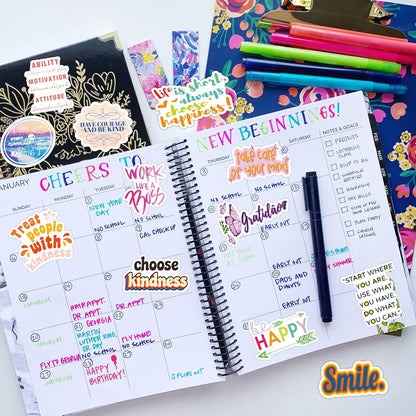 ABILITY
MOTIVATION
ATTITUDE
HAVE COURAGE
AND BE KIND
Life is short
always
choose
happiness!
JANUARY
CHEERS TO
NEW BEGINNINGS!
SUNDAY
MONDAY
TUESDAY
THURSDAY
SATURDAY
NOTES & GOALS
WORK
LIKE A
BOSS
take care
of your mind
NEW YEAR
DAY
NO SCHOOL
NO SCHOOL
NO SCHOOL
Treat
people
with
kindness
NO SCHOOL
CAL CHECK UP
Gratidão
EARLY OUT
choose
kindness
CHURCH
HAIR APPT.
DR. APPT.
GEORGIA
DR. APPT
EARLY OUT
DADS AND
DONUTS
SHOWER
CHURCH
MARTIN
LUTHER KING
JR. DAY
NO SCHOOL
FLY HOME
NO SCHOOL
be
HAPPY
EARLY OUT
FLY TO GEORGIA
CHURCH
HAPPY
BIRTHDAY!
J FLIPS OUT
"START WHERE
YOU ARE.
USE WHAT
YOU HAVE.
DO WHAT
YOU CAN."
PLAN PARTY
Smile.